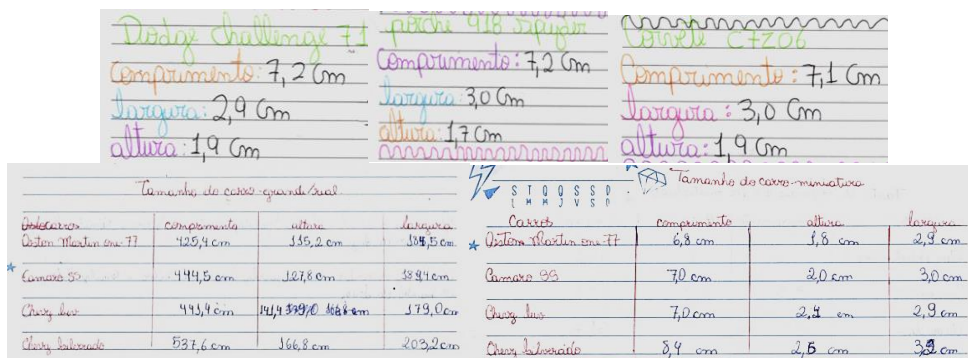 Dodge challenge 71
Comprimento: 7,2 Cm
largura: 2,9 Cm
altura: 1,9 Cm
porche 918 spyder
Comprimento: 7,2 Cm
largura: 3,0 Cm
altura: 1,7 Cm
Corvete C7Z06
Comprimento: 7,1 Cm
largura: 3,0 Cm
altura: 1,9 Cm
Tamanho do carro-grande/real
comprimento altura largura
Aston Martin one-77 425,4 cm 115,2 cm
Camaro SS 444,5 cm 127,8 cm 189,4 cm
Chevy luv 441,4 cm 179,0 cm
Chevy Silverado 537,6 cm 166,8 cm 203,2 cm
S T Q Q S S D
L M M J V S D
Tamanho do carro-miniatura
Carros comprimento altura largura
Aston Martin one-77 6,8 cm 1,8 cm 2,9 cm
Camaro SS 7,0 cm 2,0 cm 3,0 cm
Chevy luv 7,0 cm 2,1 cm 2,9 cm
Chevy Silverado 8,4 cm 2,5 cm cm